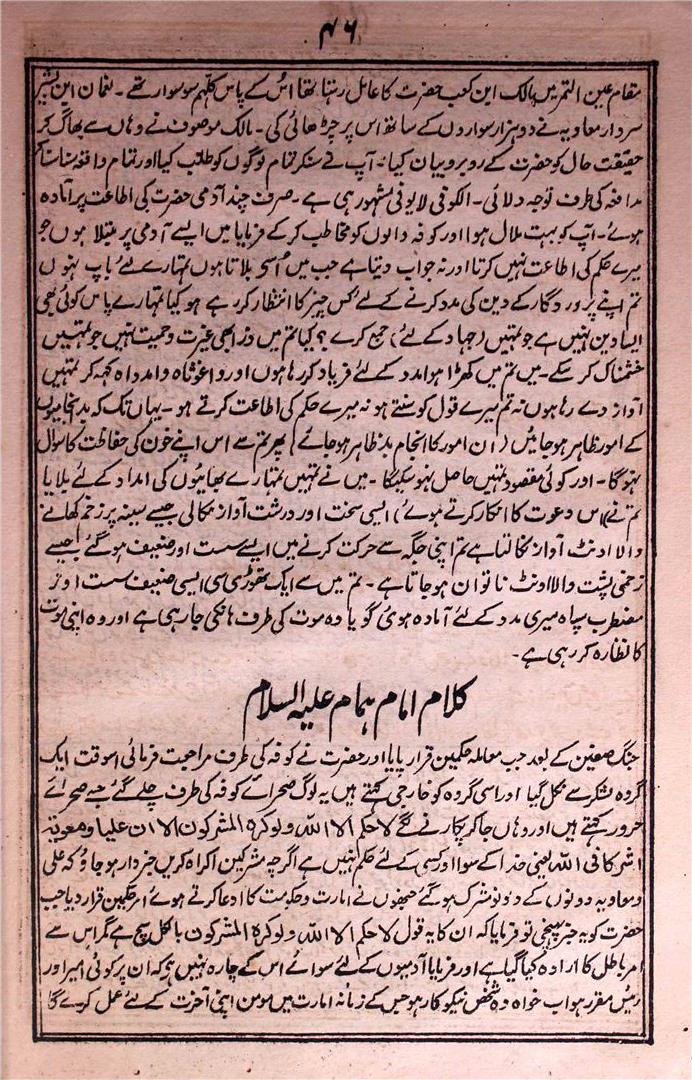 ۴۶
مقام عین التمر میں مالک ابن کعب حضرت کا عامل رہتا تھا اُس کے پاس کلہم سو سوار تھے۔ نعمان ابن بشیر
سردار معاویہ نے دو ہزار سواروں کے ساتھ اس پر چڑھائی کی۔ مالک موصوف نے وہاں سے بھاگ کر
حقیقت حال کو حضرت کے روبرو بیان کیا۔ آپ نے سنکر تمام لوگوں کو طلب کیا اور تمام واقعہ سنا سنا کر
مدافعہ کی طرف توجہ دلائی۔ الکوفی لایوفی مشہور ہی ہے۔ صرف چند آدمی حضرت کی اطاعت پر آمادہ
ہوئے۔ آپ کو بہت ملال ہوا اور کوفہ والوں کو مخاطب کر کے فرمایا میں ایسے آدمی پر مبتلا ہوں جو
میرے حکم کی اطاعت نہیں کرتا اور نہ جواب دیتا ہے جب میں اُسے بلاتا ہوں تمہارے لئے باپ نہو
تم اپنے پروردگار کے دین کی مدد کرنے کے لئے کس چیز کا انتظار کر رہے ہو کیا تمہارے پاس کوئی بھی
ایسا دین نہیں ہے جو تمہیں (جہاد کے لئے) جمع کرے؟ کیا تم میں ذرا بھی غیرت و حمیت نہیں جو تمہیں
خشمناک کر سکے۔ میں تم میں کھڑا ہوا مدد کے لئے فریاد کر رہا ہوں اور واغوثاہ وامدداہ کہہ کر تمہیں
آواز دے رہا ہوں نہ تم میرے قول کو سنتے ہو نہ میرے حکم کی اطاعت کرتے ہو۔ یہاں تک کہ بد انجامیوں
کے امور ظاہر ہو جائیں (ان امور کا انجام بد ظاہر ہو جائے) پھر تم سے اس اپنے خون کی حفاظت کا سوال
نہوگا۔ اور کوئی مقصود تمہیں حاصل نہو سکیگا۔ میں نے تمہیں تمہارے بھائیوں کی امداد کے لئے بلایا
تم نے (اس دعوت کا انکار کرتے ہوئے) ایسی سخت اور درشت آواز نکالی جیسے سینہ پر زخم کھانے
والا اونٹ آواز نکالتا ہے تم اپنی جگہ سے حرکت کرنے میں ایسے سست اور ضعیف ہو گئے جیسے
زخمی پشت والا اونٹ ناتوان ہو جاتا ہے۔ تم میں سے ایک تھوڑی سی ایسی ضعیف سست اور
مضطرب سپاہ میری مدد کے لئے آمادہ ہوئی گویا وہ موت کی طرف ہانکی جا رہی ہے اور وہ اپنی موت
کا نظارہ کر رہی ہے۔
کلام امام ہمام علیہ السلام
جنگ صفین کے بعد جب معاملہ حکمین قرار پایا اور حضرت نے کوفہ کی طرف مراجعت فرمائی اسوقت ایک
گروہ لشکر سے نکل گیا اور اسی گروہ کو خارجی کہتے ہیں یہ لوگ صحرائے کوفہ کی طرف چلے گئے جسے صحرائے
حرور کہتے ہیں اور وہاں جا کر پکارنے لگے لا حکم الا اللہ ولو کرہ المشرکون الا ان علیا و معویۃ
اشرکا فی اللہ یعنی خدا کے سوا اور کسی کے لئے حکم نہیں ہے اگرچہ مشرکین اکراہ کریں خبردار ہو جاؤ کہ علی
و معاویہ دونوں کے دونو مشرک ہو گئے جنھوں نے امارت و حکومت کا ادعا کرتے ہوئے امر حکمین قرار دیا جب
حضرت کو یہ خبر پہنچی تو فرمایا کہ ان کا یہ قول لا حکم الا اللہ ولو کرہ المشرکون بالکل سچ ہے مگر اس سے
امر باطل کا ارادہ کیا گیا ہے اور فرمایا آدمیوں کے لئے سوائے اس کے چارہ نہیں ہے کہ ان پر کوئی امیر اور
رئیس مقرر ہو اب خواہ وہ شخص نیکوکار ہو جس کے زمانہ امارت میں مومن اپنی آخرت کے لئے عمل کرے گا